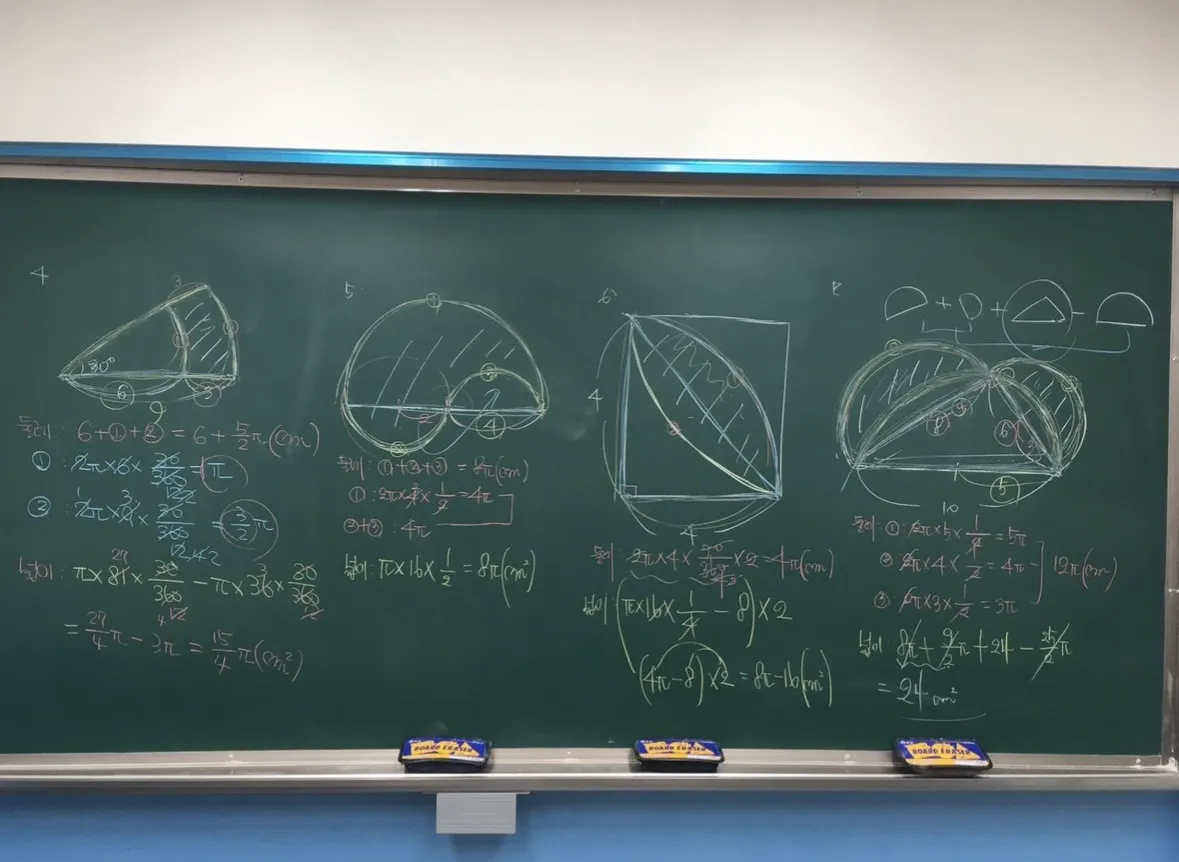 4
3
30°
6
3
9
둘레: 6+①+②=6+5/2π(cm)
①: 2π×6×30/360=π
②: 2π×9×30/360=3/2π
넓이: π×81×30/360-π×36×30/360
=27/4π-3π=15/4π(cm²)
5
①
②
③
2
4
둘레: ①+②+③=8π(cm)
①: 2π×4×1/2=4π
②+③: 4π
넓이: π×16×1/2=8π(cm²)
6
4
4
둘레: 2π×4×90/360×2=4π(cm)
넓이: (π×16×1/4-8)×2
(4π-8)×2=8π-16(cm²)
+ + -
8
6
5
10
둘레: ①: 2π×5×1/2=5π
②: 2π×4×1/2=4π
③: 2π×3×1/2=3π
12π(cm)
넓이: 8π+9/2π+24-25/2π
=24cm²
BOARD ERASER
BOARD ERASER
BOARD ERASER